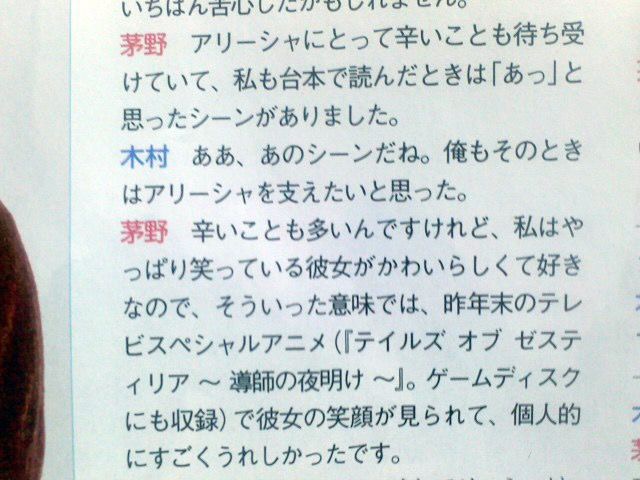 いちばん苦心したかもしれません。
茅野　アリーシャにとって辛いことも待ち受
けていて、私も台本で読んだときは「あっ」と
思ったシーンがありました。
木村　ああ、あのシーンだね。俺もそのとき
はアリーシャを支えたいと思った。
茅野　辛いことも多いんですけれど、私はや
っぱり笑っている彼女がかわいらしくて好き
なので、そういった意味では、昨年末のテレ
ビスペシャルアニメ（『テイルズ オブ ゼステ
ィリア ～ 導師の夜明け ～』。ゲームディスク
にも収録）で彼女の笑顔が見られて、個人的
にすごくうれしかったです。